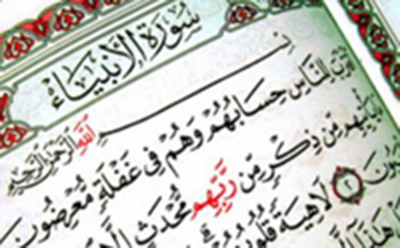 سورة الأنبياء
بسم الله الرحمن الرحيم
للناس حسابهم وهم في غفلة معرضون
يأتيهم من ذكر من ربهم محدث إلا
لاهية قلو